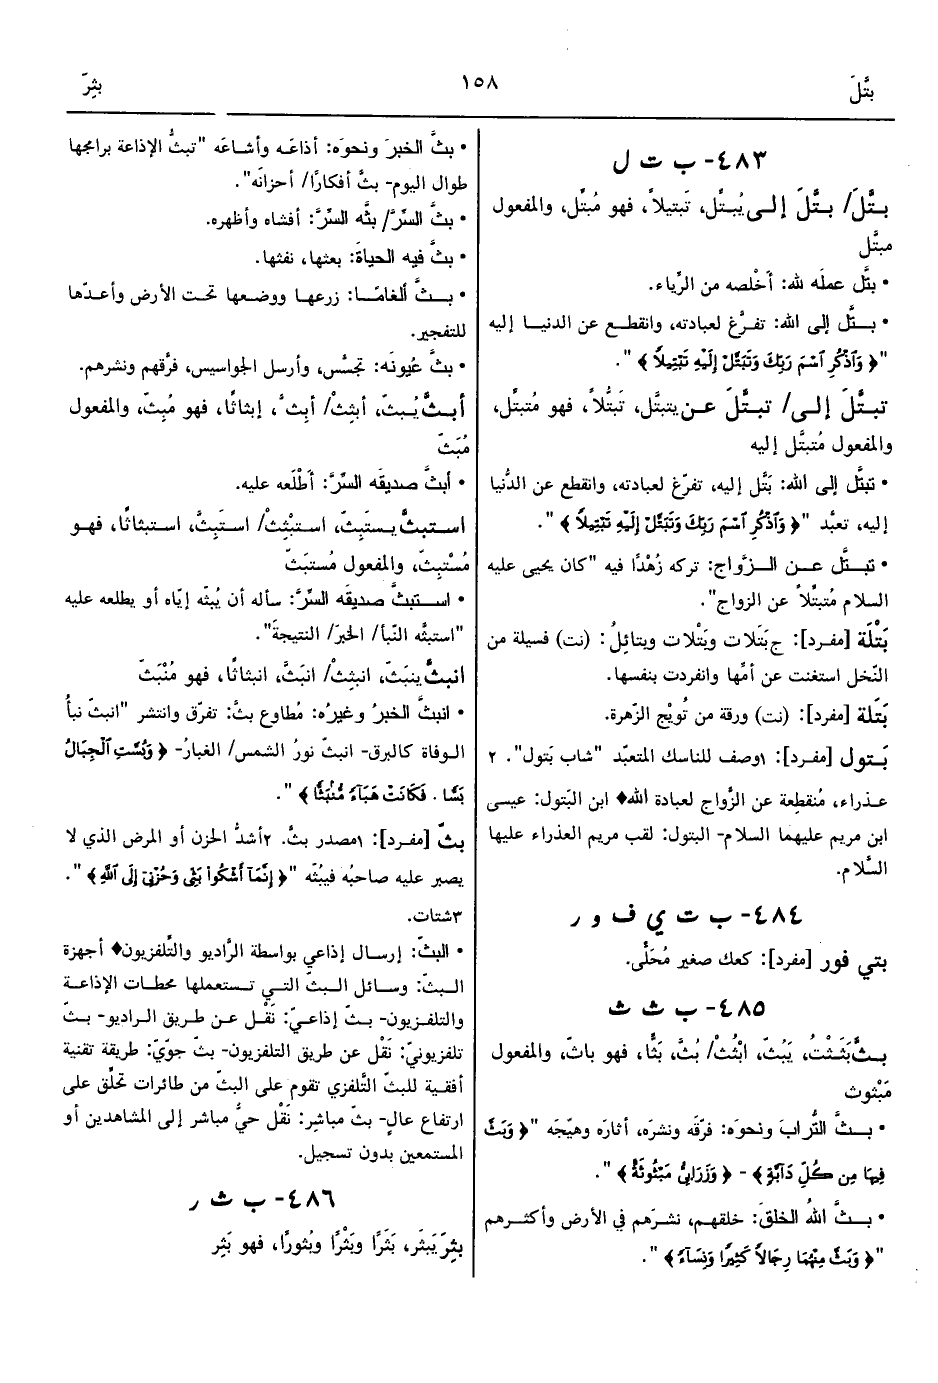 بتَّلَ
١٥٨
بثِرَ
٤٨٣- ب ت ل
بتَّلَ/ بتَّلَ إلى يُبتِّل، تَبتيلاً، فهو مُبتِّل، والمفعول
مبتَّل
• بتَّل عملَه لله: أخْلصه من الرِّياء.
• بـتَّل إلى الله: تفـرَّغ لعبادته، وانقطـع عن الدنيـا إليه
"﴿ وَاذْكُرِ اسْمَ رَبِّكَ وَتَبَتَّلْ إِلَيْهِ تَبْتِيلاً ﴾ ".
تبـتَّلَ إلـى/ تبـتَّلَ عـن يتبتَّل، تَبتُّلاً، فهو مُتبتِّل،
والمفعول مُتبتَّل إليه
• تبتَّل إلى الله: بَتَّل إليه، تفرّغ لعبادته، وانقطع عن الدُّنيا
إليه، تعبَّد "﴿ وَاذْكُرِ اسْمَ رَبِّكَ وَتَبَتَّلْ إِلَيْهِ تَبْتِيلاً ﴾ ".
• تبـتَّل عـن الـزَّواج: تركه زُهْدًا فيه "كان يحيى عليه
السلام مُتبتِّلاً عن الزواج".
بَتْلَة [مفـرد]: ج بَتَلات وبَتْلات وبتائِلُ: (نت) فسيلة من
النّخل استغنت عن أمّها وانفردت بنفسها.
بَتَلة [مفرد]: (نت) ورقة من تُويْج الزّهرة.
بَتول [مفرد]: ١وصف للناسك المتعبّد "شاب بَتول". ٢
عـذراء، مُنقطِعة عن الزَّواج لعبادة الله♦ ابن البَتول: عيسى
ابن مريم عليهما السلام- البتول: لقب مريم العذراء عليها
السَّلام.
٤٨٤- ب ت ي ف و ر
بتي فور [مفرد]: كعك صغير مُحَلًّى.
٤٨٥- ب ث ث
بـثَّ بَثَـثْتُ، يَبُثّ، ابْثُثْ/ بُثَّ، بَثًّا، فهو باثّ، والمفعول
مَبْثوث
• بـثَّ التُّرابَ ونحوَه: فرّقه ونشره، أثاره وهيّجه "﴿ وَبَثَّ
فِيهَا مِن كُلِّ دَآبَّةٍ﴾ - ﴿ وَزَرَابِيُّ مَبْثُوثَةٌ ﴾ ".
• بـثَّ اللهُ الخلقَ: خلقهم، نشرَهم في الأرض وأكثـرهم
"﴿ وَبَثَّ مِنْهُمَا رِجَالاً كَثِيرًا وَنِسَآءً ﴾ ".
• بثَّ الخبرَ ونحوَه: أذاعَـه وأشاعَه "تبثُّ الإذاعة برامجها
طوال اليوم- بثَّ أفكارًا/ أحزانَه".
• بثَّ السِّرَّ/ بثَّه السِّرَّ: أفشاه وأظهره.
• بثَّ فيه الحياةَ: بعثها، نفثها.
• بـثَّ ألغامًـا: زرعهـا ووضعهـا تحت الأرض وأعـدّها
للتفجير.
• بثَّ عُيونَه: تجسَّس، وأرسل الجواسيس، فرَّقهم ونشرهم.
أبـثَّ يُبـثّ، أبثِثْ/ أبِثَّ، إبثاثًا، فهو مُبِثّ، والمفعول
مُبَثّ
• أبثَّ صديقَه السِّرَّ: أطْلَعه عليه.
استبـثَّ يستَبِثّ، استَبْثِثْ/ استَبِثَّ، استبثاثًا، فهـو
مُسْتَبِثّ، والمفعول مُستبَثّ
• استبثَّ صديقَه السِّرَّ: سأله أن يُبثّه إيّاه أو يطلعه عليه
"استبثّه النّبأ/ الخبرَ/ النتيجةَ".
انبثَّ ينبَثّ، انبثِثْ/ انبَثَّ، انبثاثًا، فهو مُنْبَثّ
• انبثَّ الخبرُ وغيرُه: مُطاوع بثَّ: تفرّق وانتشر "انبثّ نبأُ
الوفاة كالبرق- انبثّ نورُ الشمس/ الغبارُ- ﴿ وَبُسَّتِ الْجِبَالُ
بَسًّا . فَكَانَتْ هَبَآءً مُنْبَثًّا ﴾ ".
بثّ [مفـرد]: ١مصدر بثَّ. ٢أشدُّ الحزن أو المرض الذي لا
يصبر عليه صاحبُه فيبُثّه "﴿ إِنَّمَآ أَشْكُواْ بَثِّي وَحُزْنِي إِلَى اللَّهِ ﴾ ".
٣شتات.
• البثّ: إرسال إذاعي بواسطة الرَّاديو والتِّلفزيون♦ أجهزة
الـبثّ: وسـائل البثّ التـي تـستعملها محطات الإذاعـة
والتلفـزيون- بـثّ إذاعـيّ: نَقْل عـن طريق الـراديو- بـثّ
تلفزيونيّ: نَقْل عن طريق التلفزيون- بثّ جوّيّ: طريقة تقنية
أفقية للبثّ التَّلفزي تقوم على البثّ من طائرات تحلِّق على
ارتفاع عالٍ- بثّ مباشر: نَقْل حيُّ مباشر إلى المشاهدين أو
المستمعين بدون تسجيل.
٤٨٦- ب ث ر
بثِرَ يَبثَر، بَثَرًا وبَثْرًا وبُثورًا، فهو بَثِر